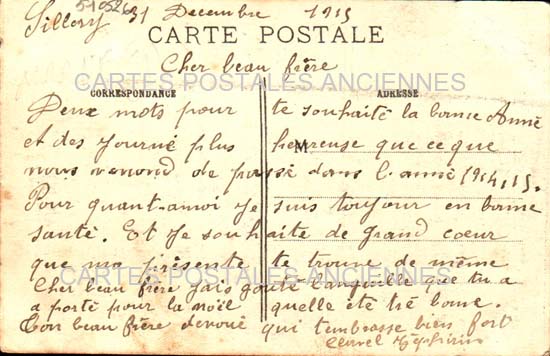 510526
Sillery 31 Decembre 1915
CARTE POSTALE
Cher beau frère
CARTES POSTALES ANCIENNES
CORRESPONDANCE
ADRESSE
Deux mots pour te souhaité la bonne Anné
et des journé plus heureuse que ce que
M
nous venond de passé dans l'anné 1914, 15.
Pour quant-amoi je suis toujour en bonne
santé. Et je souhaite de grand cœur
que ma présente te trouve de même
CARTES POSTALES ANCIENNES
Cher beau frère jais gouté l'anguille que tu a
a porté pour la noël quelle été tré bonne.
Ton beau frère dénoué qui tembrasse bien fort